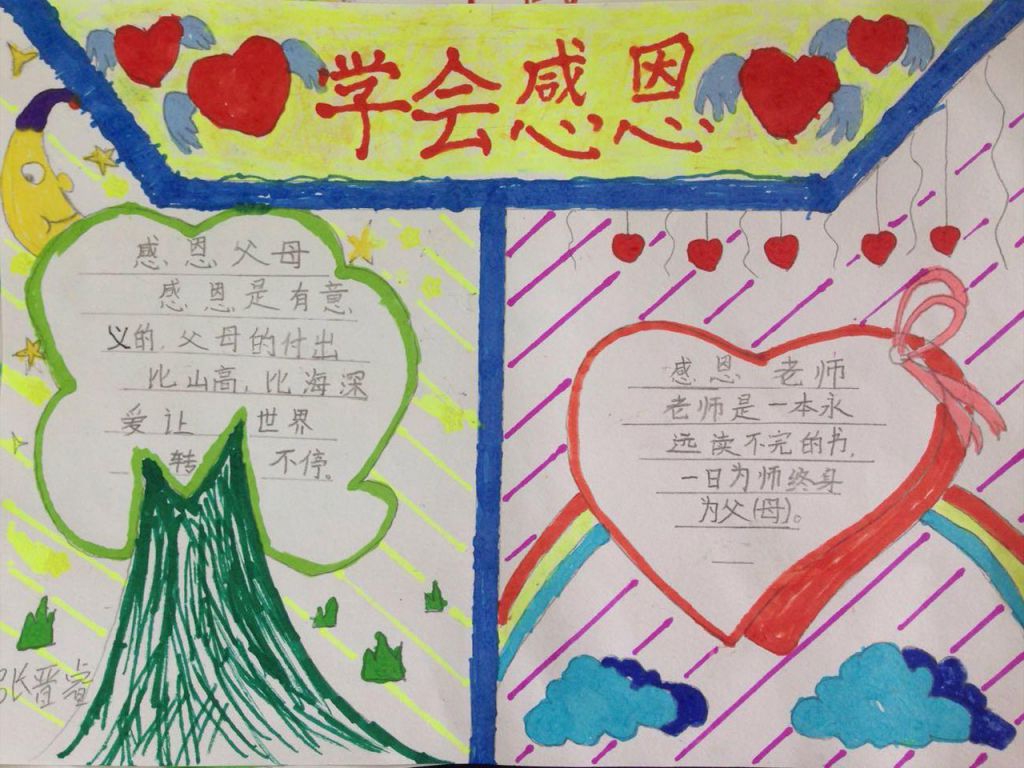 学会感恩
感恩父母
感恩是有意
义的,父母的付出
比山高,比海深
爱让 世界
转 不停。
张晋睿
感恩 老师
老师是一本永
远读不完的书,
一日为师终身
为父(母)。